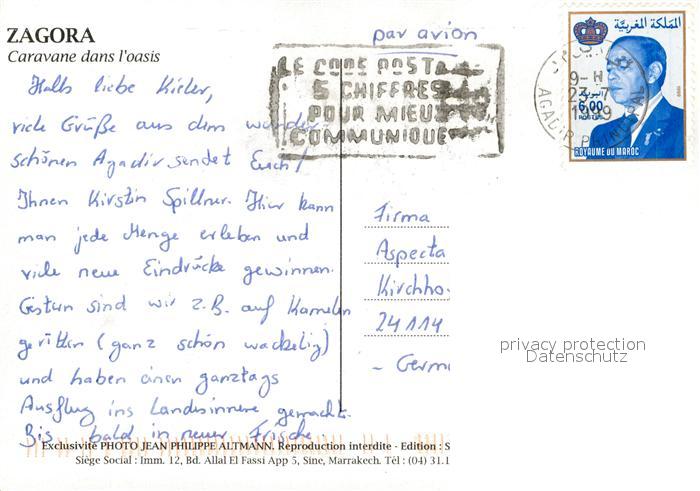 ZAGORA
Caravane dans l'oasis
par avion
Hallo liebe Kieler,
viele Grüße aus dem wunder
schönen Agadir sendet Euch/
Ihnen Kirstin Spillner. Hier kann
man jede Menge erleben und
viele neue Eindrücke gewinnen.
Gestern sind wir z.B. auf Kamelen
geritten (ganz schön wackelig)
und haben einen ganztags
Ausflug ins Landesinnere gemacht.
Bis bald in neuer Frische
LE CODE POSTAL
5 CHIFFRES
POUR MIEUX
COMMUNIQUE
المملكة المغربية
البريد
6,00
POSTES
ROYAUME DU MAROC
9-H
23-7
AGADIR PRINCIPAL
Firma
Aspecta
Kirchho
24114
- Germ
privacy protection
Datenschutz
Exclusivité PHOTO JEAN PHILIPPE ALTMANN. Reproduction interdite - Edition : S
Siège Social : Imm. 12, Bd. Allal El Fassi App 5, Sine, Marrakech. Tél : (04) 31.1